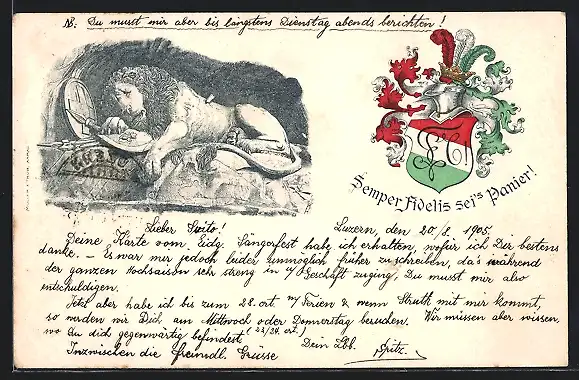 NB: Du musst mir aber bis längstens Dienstag abends berichten!
Semper Fidelis sei's Panier!
LUZERN
Lieber Spito!
Luzern, den 20/8. 1905.
Deine Karte vom Eidg. Sängerfest habe ich erhalten, wofür ich Dir bestens
danke. – Es war mir jedoch leider unmöglich früher zu schreiben, da's während
der ganzen Hochsaison sehr streng in Geschäft zuging, Du musst mir also
entschuldigen.
Jetzt aber habe ich bis zum 28. crt. Ferien & wenn Struth mit mir kommt,
so werden wir Dich am Mittwoch oder Donnerstag besuchen. Wir müssen aber wissen,
wo Du dich gegenwärtig befindest! (23/24. crt.)
Inzwischen die freundl. Grüsse
Dein Lbb.
Spitz.